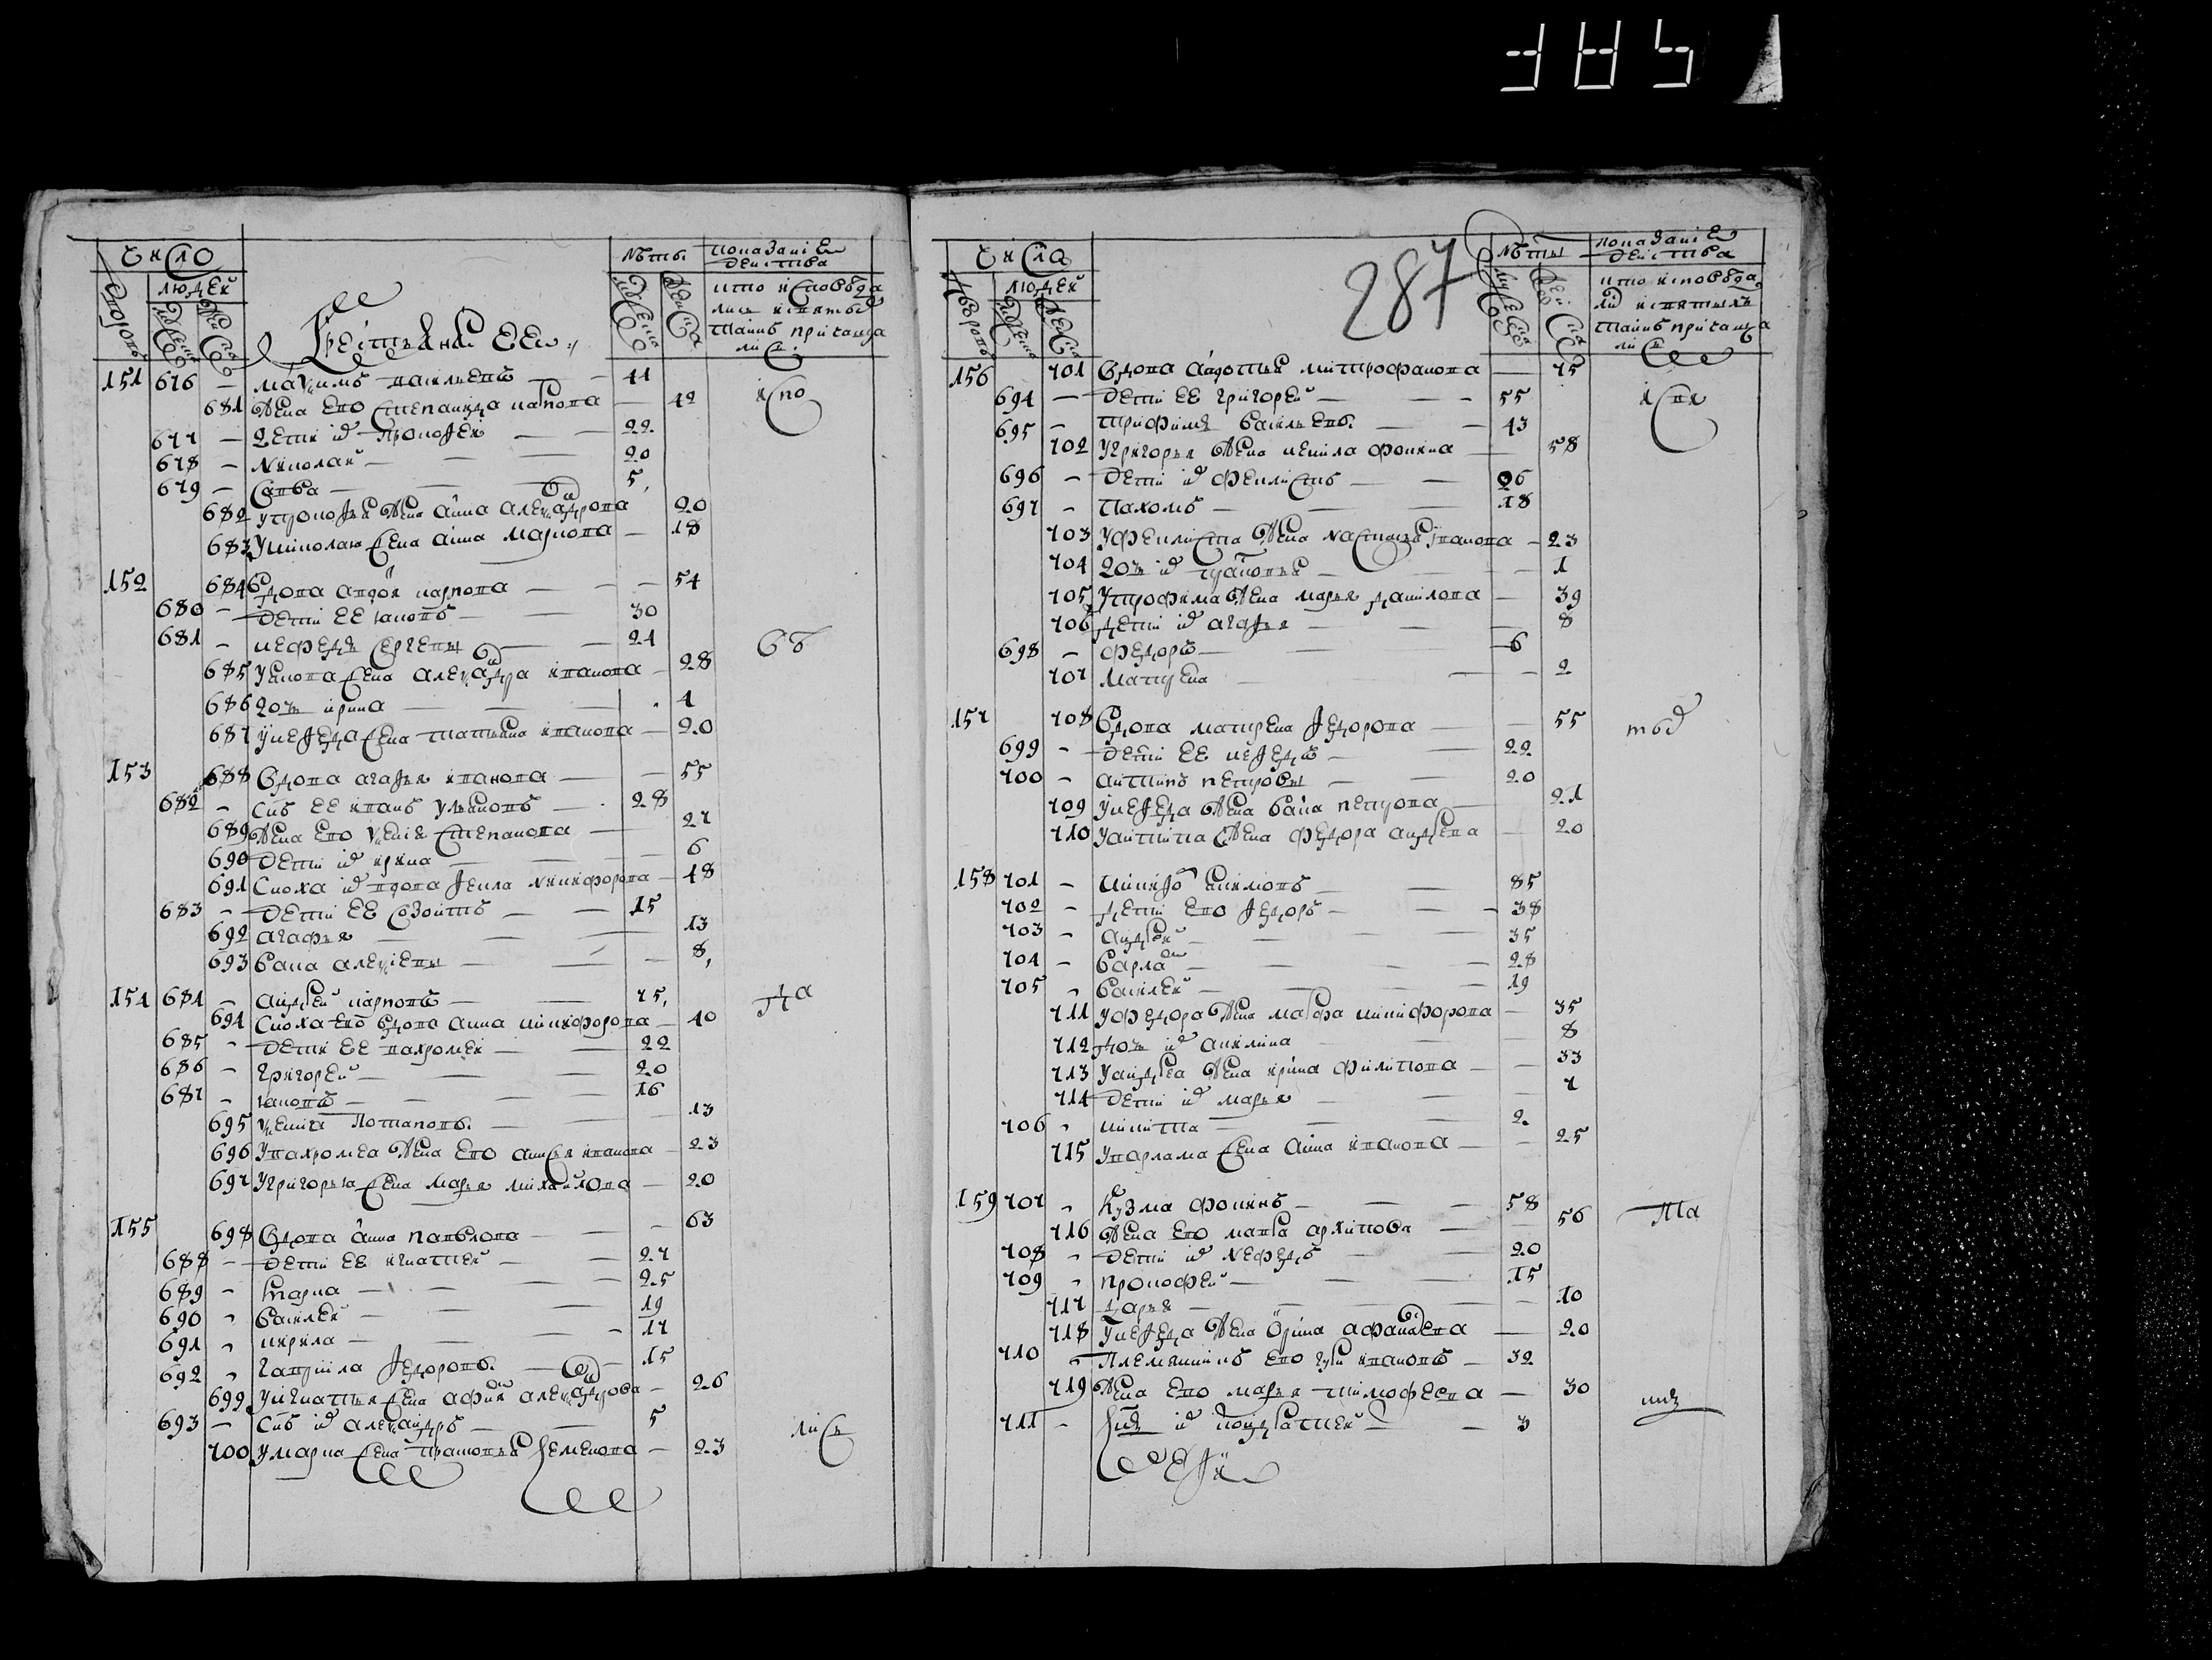 385
Число
лѣтъ
показание
действа
людей
дворовъ
мужеска
женска
кто исповеда
лись и святыхъ
таинъ причаща
лись
Крестьяне ее
151 676 – Максимъ Васильевъ – 41
681 Жена ево Степанида Карпова – 42 испо
677 – Дети их Прокофей – 22
678 – Николай – 20
679 – Савва – 5
682 У Прокофья жена Анна Александрова 20
683 У Николая жена Анна Маркова – 18
152 684 Вдова Авдотя Карпова – 54
680 – Дети ее Иаковъ – 30
681 – Нефедъ Сергеевы – 21 вѣ
685 У Якова жена Александра Иванова – 28
686 Дочь Ирина – 1
687 У Нефеда жена Татьяна Иванова – 20
153 688 Вдова Агафья Иванова – 55
682 – Снъ ее Иванъ Ульяновъ – 28
689 Жена ево Ксения Степанова – 27
690 Дети их Ирина – 6
691 Сноха их вдова Фекла Никифорова – 48
683 – Дети ее Созонтъ – 15
692 Агафья – 13
693 Вана Алексеевы – 8
154 684 – Андрей Карповъ – 75 да
694 Сноха ево вдова Анна Никифорова – 40
685 – Дети ее Вахромей – 22
686 – Григорей – 20
687 – Иаковъ – 16
695 Ксения Потаповы – 13
696 У Вахромея жена ево Анисья Иванова – 23
697 У Григорья жена Марья Михайлова – 20
155 698 Вдова Анна Павлова – 63
688 – Дети ее Игнатей – 27
689 – Марка – 25
690 – Василей – 19
691 – Кирила – 17
692 – Гаврила Федоровы – 15
699 У Игнатья жена Афимя Александрова – 26
693 – Снъ их Александръ – 5
700 У Марка жена Прасковья Семенова – 23 лись
Числа
287
лѣты
показание
действа
людей
дворовъ
мужеска
женска
кто исповеда
ли и святыхъ
таинъ причаща
лись
156 701 Вдова Авдотья Митрофанова – 75
694 – Дети ее Григорей – 55 испи
695 – Трифимъ Васильевы – 43
702 У Григорья жена Фекила Фокина 58
696 – Дети их Феклистъ – 26
697 – Пахомъ – 18
703 У Феклиста жена Настасья Иванова – 23
704 Дочь их Прасковья – 1
705 У Трофима жена Марья Данилова – 39
706 Дети их Агафья – 8
698 – Федоръ – 6
707 Матрена – 2
157 708 Вдова Матрена Федорова – 55 твд
699 – Дети ее Нефедъ – 22
700 – Антипъ Петровы – 20
709 У Нефеда жена Васа Петрова – 21
710 У Антипа жена Федора Андреева 20
158 701 – Никифоръ Якимовъ – 85
702 – Дети ево Федоръ – 38
703 – Андрей – 35
704 – Варламъ – 28
705 – Василей – 19
711 У Федора жена Марфа Никифорова – 35
712 Дочь их Акилина – 8
713 У Андрея жена Ирина Филипова – 33
714 Дети их Марья – 7
706 – Никита – 2
715 У Варлама жена Анна Иванова – 25
159 707 – Кузма Фокинъ – 58
716 Жена ево Марфа Архипова – 56 Та
708 – Дети их Нефедъ – 20
709 – Прокофей – 15
717 Дарья – 10
718 У Нефеда жена Орина Афанасева – 20
710 – Племянникъ ево Гурей Ивановъ – 32
719 Жена ево Марья Тимофеева – 30
711 – Снъ их Кондратей – 3